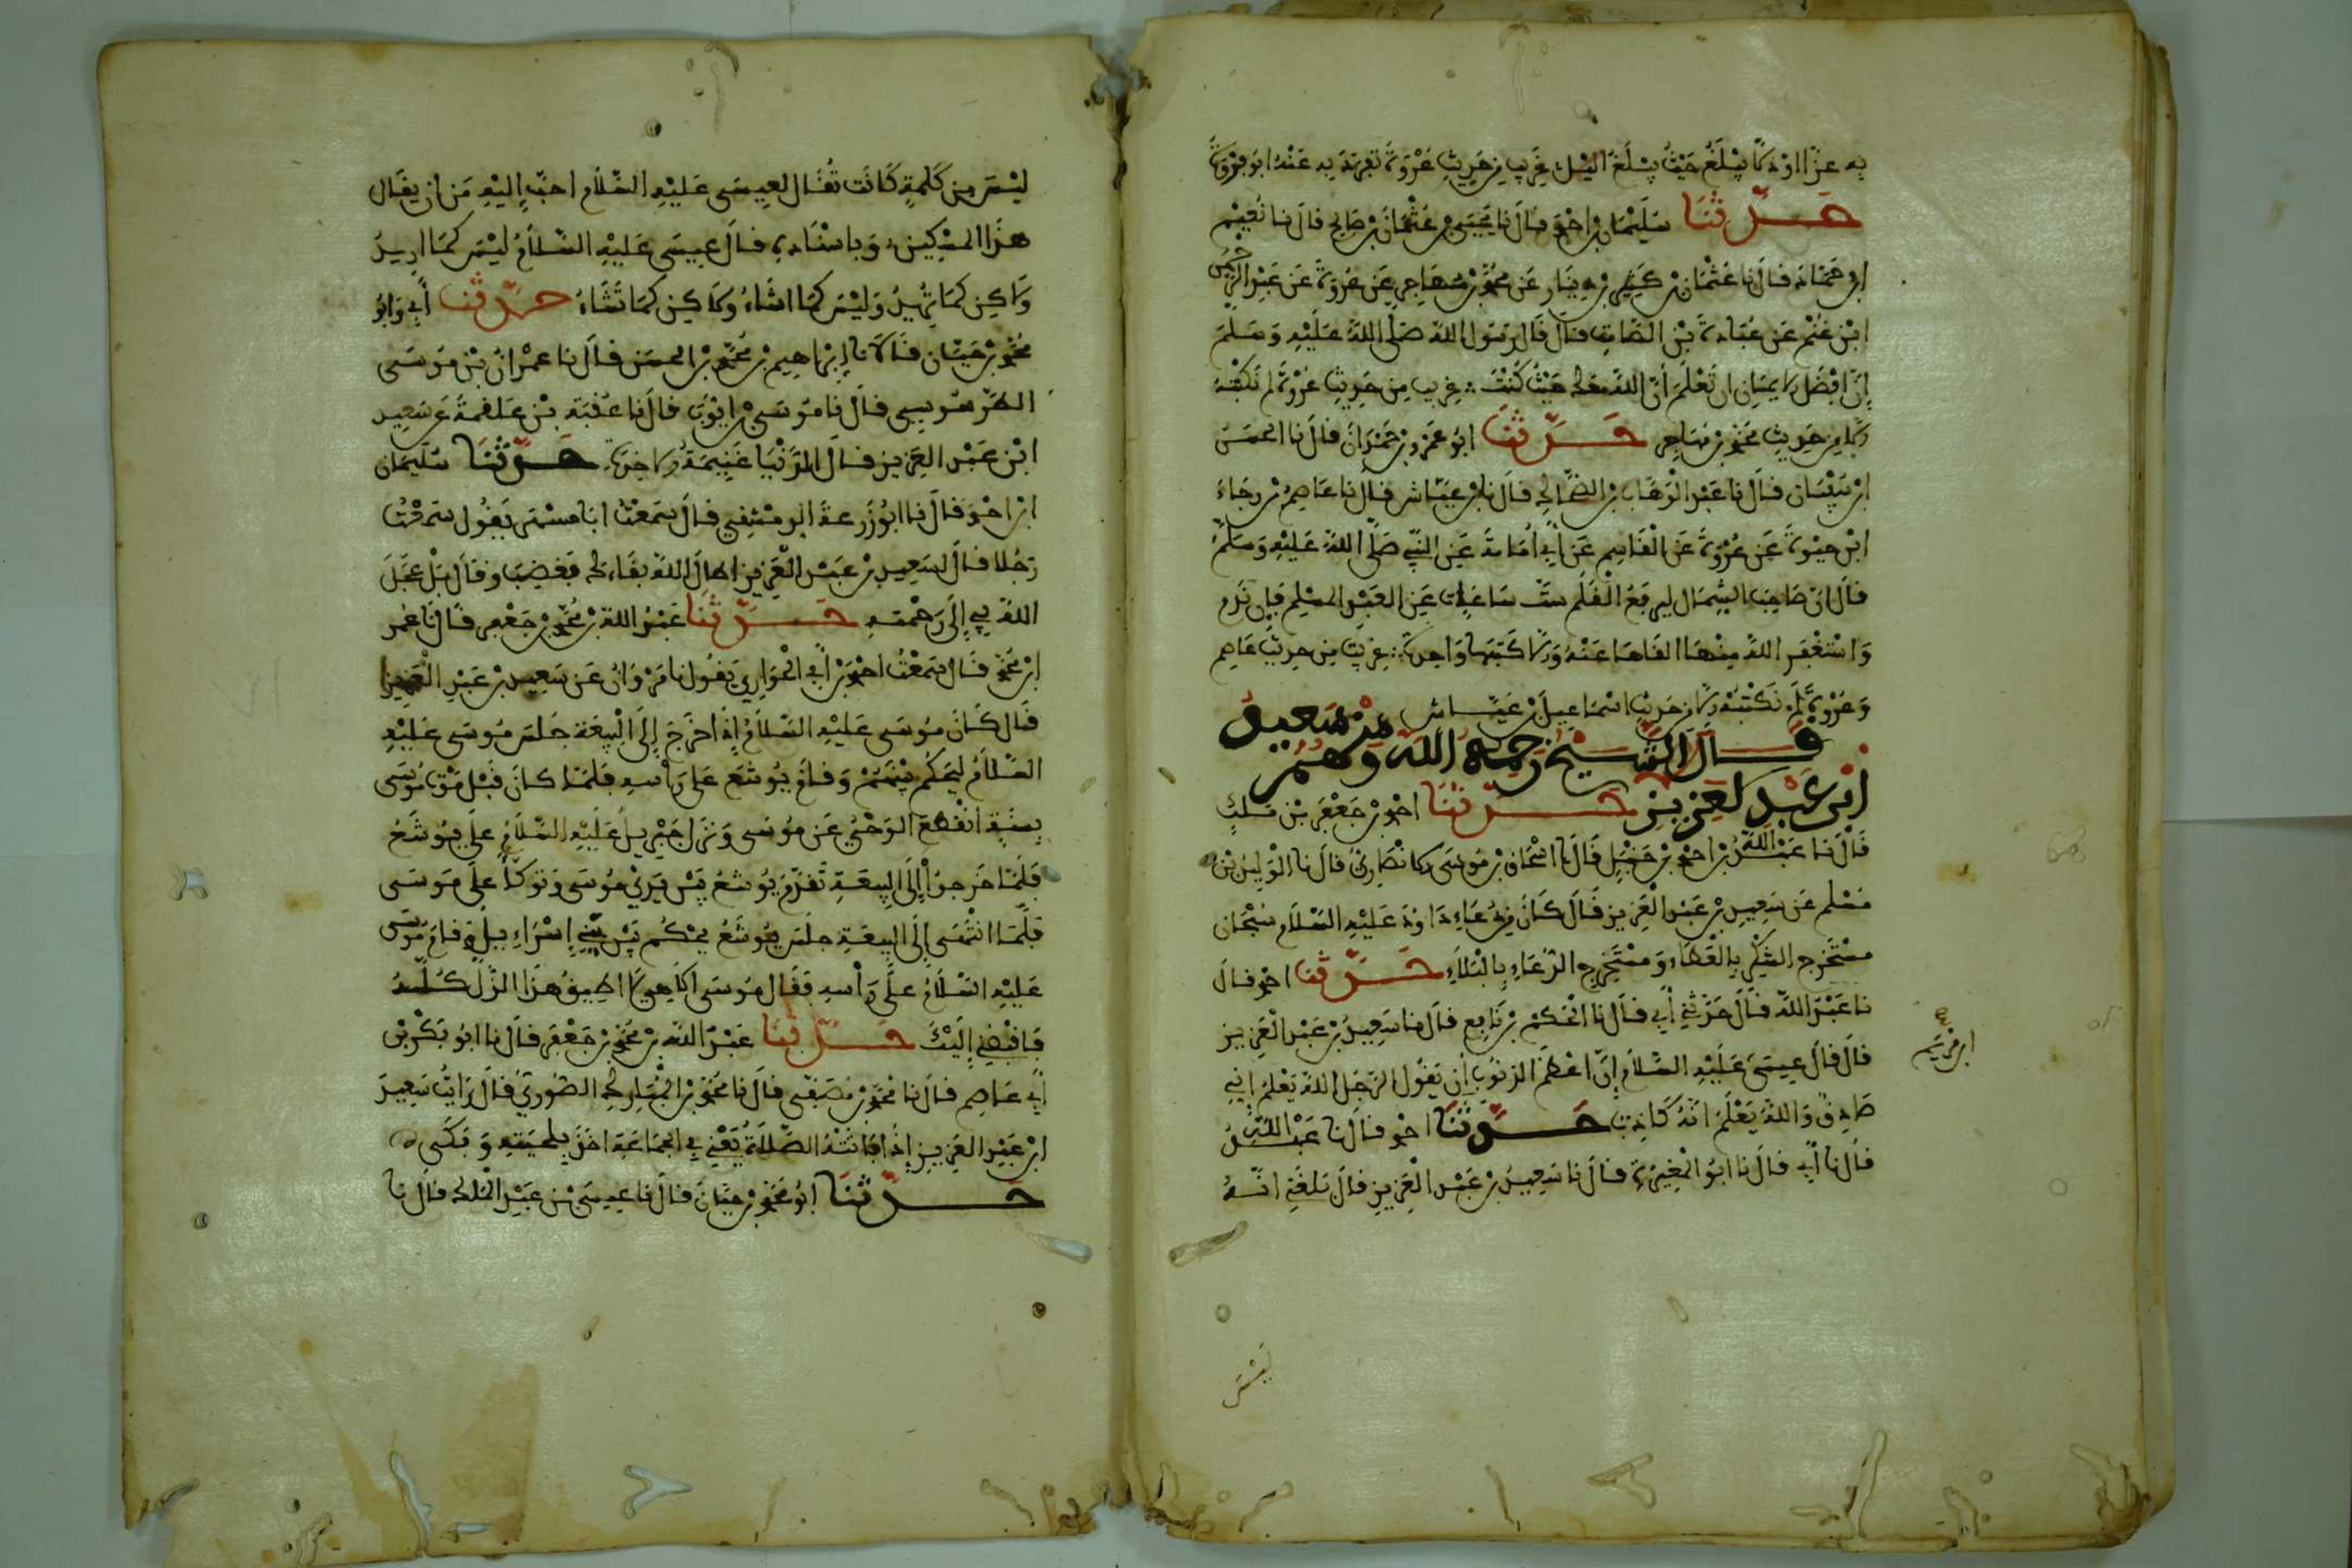 به عزا او ذلا يبلغ حيث يبلغ الليل غريب من حديث عروة تفرد به عنه ابو فروة
حدثنا سليمان بن احمد قال نا يحيى بن عثمان بن صالح قال نا نعيم
ابن حماد قال نا عثمان بن كثير بن دينار عن محمد بن مهاجر عن عروة عن عبد الرحمن
ابن غنم عن عبادة بن الصامت قال قال رسول الله صلى الله عليه وسلم
إن افضل الايمان ان تعلم أن الله معك حيث كنت غريب من حديث عروة لم نكتبه
الا من حديث محمد بن مهاجر حدثنا ابو عمرو بن حمدان قال نا الحسن
ابن سفيان قال نا عبد الوهاب بن الضحاك قال نا ابن عياش قال نا عاصم بن رجاء
ابن حيوة عن عروة عن القاسم عن أبي أمامة عن النبي صلى الله عليه وسلم
قال ان صاحب الشمال ليرفع القلم ست ساعات عن العبد المسلم فإن ندم
واستغفر الله منها القاها عنه وإلا كتبها واحدة غريب من حديث عاصم
وعروة لم نكتبه إلا من حديث اسماعيل بن عياش
قال الشيخ رحمه الله ومنهم سعيد
ابن عبد العزيز حدثنا احمد بن جعفر بن ملك
قال نا عبد الله بن احمد بن حنبل قال نا اسحاق بن موسى الانصاري قال نا الوليد بن
مسلم عن سعيد بن عبد العزيز قال كان من دعاء داود عليه السلام سبحان
مستخرج الشكر بالعطاء ومستخرج الدعاء بالبلاء حدثنا احمد قال
نا عبد الله قال حدثني أبي قال نا الحكم بن نافع قال نا سعيد بن عبد العزيز
قال قال عيسى عليه السلام إن اعظم الذنوب ان يقول الرجل الله يعلم إني
ابن مريم
صادق والله يعلم انه كاذب حدثنا احمد قال نا عبد الله
قال نا أبي قال نا ابو المغيرة قال نا سعيد بن عبد العزيز قال بلغني انه
ليس
ليس من كلمة كانت تقال لعيسى عليه السلام احب اليه من ان يقال
هذا المسكين وباسناده قال عيسى عليه السلام ليس كما اريد
ولاكن كما تريد وليس كما اشاء ولاكن كما تشاء حدثنا أبي وابو
محمد بن حيان قالا نا إبراهيم بن محمد بن الحسن قال نا عمران بن موسى
الطرسوسي قال نا موسى بن ايوب قال نا عقبة بن علقمة عن سعيد
ابن عبد العزيز قال الدنيا غنيمة الاخرة حدثنا سليمان
ابن احمد قال نا ابو زرعة الدمشقي قال سمعت ابا مسهر يقول سمعت
رجلا قال لسعيد بن عبد العزيز اطال الله بقاءك فغضب وقال بل عجل
الله بي إلى رحمته حدثنا عبد الله بن محمد بن جعفر قال نا عمر
ابن محمد قال سمعت احمد بن أبي الحواري يقول نا مروان عن سعيد بن عبد العزيز
قال كان موسى عليه السلام إذا خرج إلى البيعة جلس موسى عليه
السلام ليحكم بينهم وقام يوشع على رأسه فلما كان قبل موت موسى
بسنة انقطع الوحي عن موسى ونزل جبريل عليه السلام على يوشع
فلما خرجوا إلى البيعة تقدم يوشع بين يدي موسى وتوكأ على موسى
فلما انتهى إلى البيعة جلس يوشع يحكم بين بني إسراءيل وقام موسى
عليه السلام على رأسه فقال موسى الاهي لا اطيق هذا الذل كله
فاقبضني إليك حدثنا عبد الله بن محمد بن جعفر قال نا ابو بكر بن
أبي عاصم قال نا محمد بن مصفى قال نا محمد بن المبارك الصوري قال رايت سعيد
ابن عبد العزيز إذا فاتته الصلاة يعني في الجماعة اخذ بلحيته وبكى
حدثنا ابو محمد بن حيان قال نا عيسى بن عبد الملك قال نا